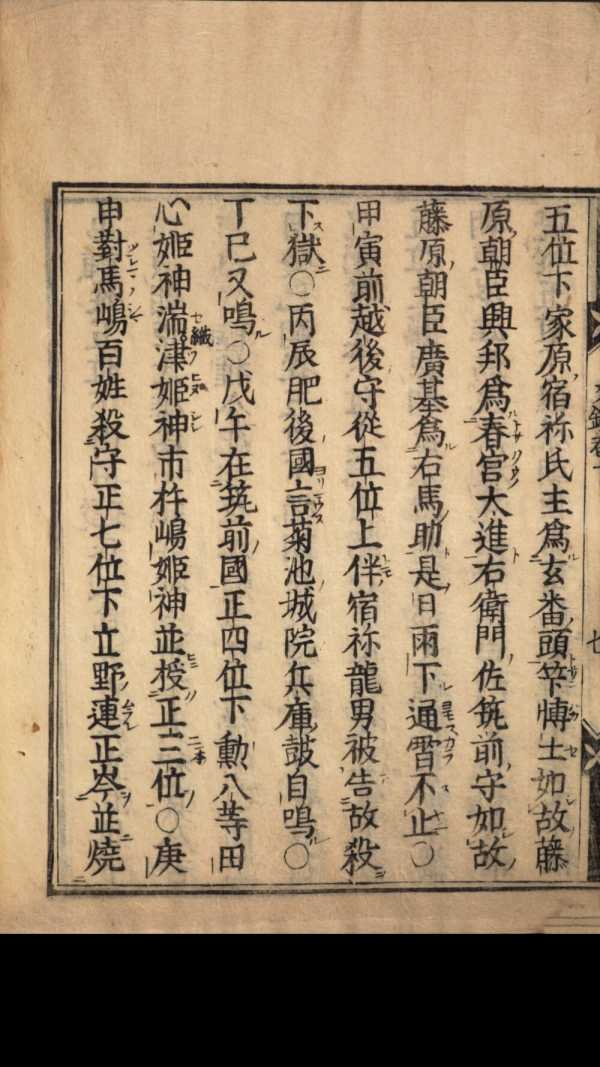 五位下家原宿祢氏主為玄番頭筭博士如故藤
原朝臣興邦為春宮大進右衛門佐筑前守如故
藤原朝臣廣基為右馬助是日雨下通霄不止〇
甲寅前越後守從五位上伴宿祢龍男被告故殺
下獄〇丙辰肥後國言菊池城院兵庫皷自鳴〇
丁巳又鳴〇戊午在筑前國正四位下勳八等田
心姫神湍津姫神市杵嶋姫神並授正三位〇庚
申對馬嶋百姓殺守正七位下立野連正岑並燒